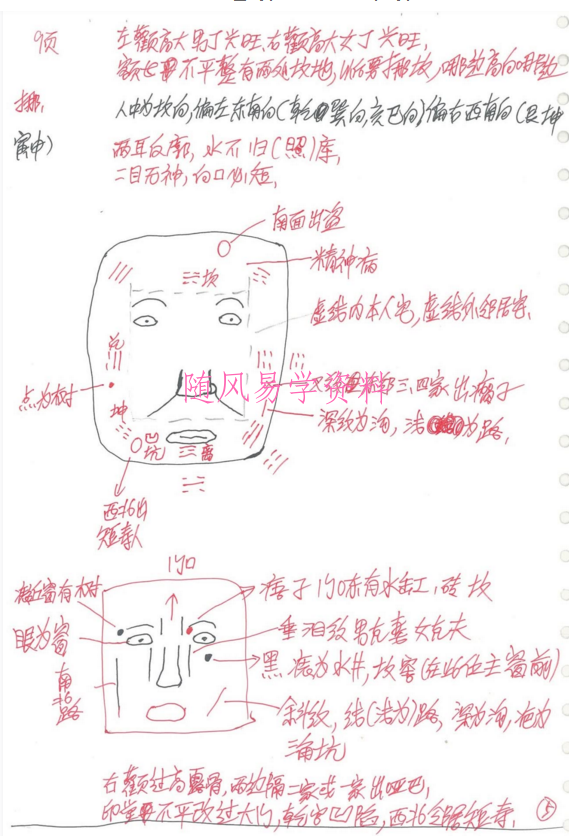 9页
左颧高大男丁兴旺、右颧高大女丁兴旺,
额也要不平整有两处坎地,
哪边高向哪边
挪,
人中为坎向,偏左东南向(乾巽向,亥巳向)偏右西南向(艮坤
寅申)
两耳反廓,水不归(照)库,
二目无神,向口必短,
南面出盗
精神病
坎
虚线内本人宅,虚线外邻居宅、
兑
随风易学资料
三、四家出瘸子
点为树
深纹为沟,洁为路,
坤
凹坑
离
西北出
短寿人
门口
窗有树
痣子门口东有水缸,砖坎
眼为窗
垂泪纹男克妻女克夫
黑痣为水井,坎窖(在此位主窗前)
南北路
斜纹,结(洁为)路,深为沟,疤为
海坑
右颧过高露骨,两边隔二家或一家出哑巴,
印堂不平改过大门,乾宫凹陷,西北邻居短寿、
5